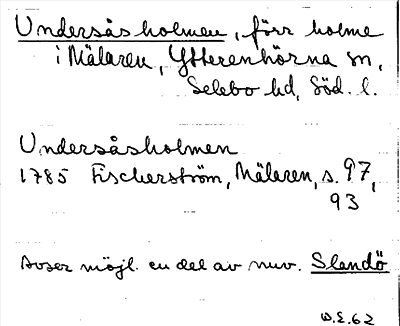 Undersåsholmen, förr holme
i Mälaren, Ytterenhörna sn,
Selebo hd, Söd. l.
Undersåsholmen
1785 Fischerström, Mälaren, s. 97,
93
Avser möjl. en del av nuv. Slandö
W.E. 62